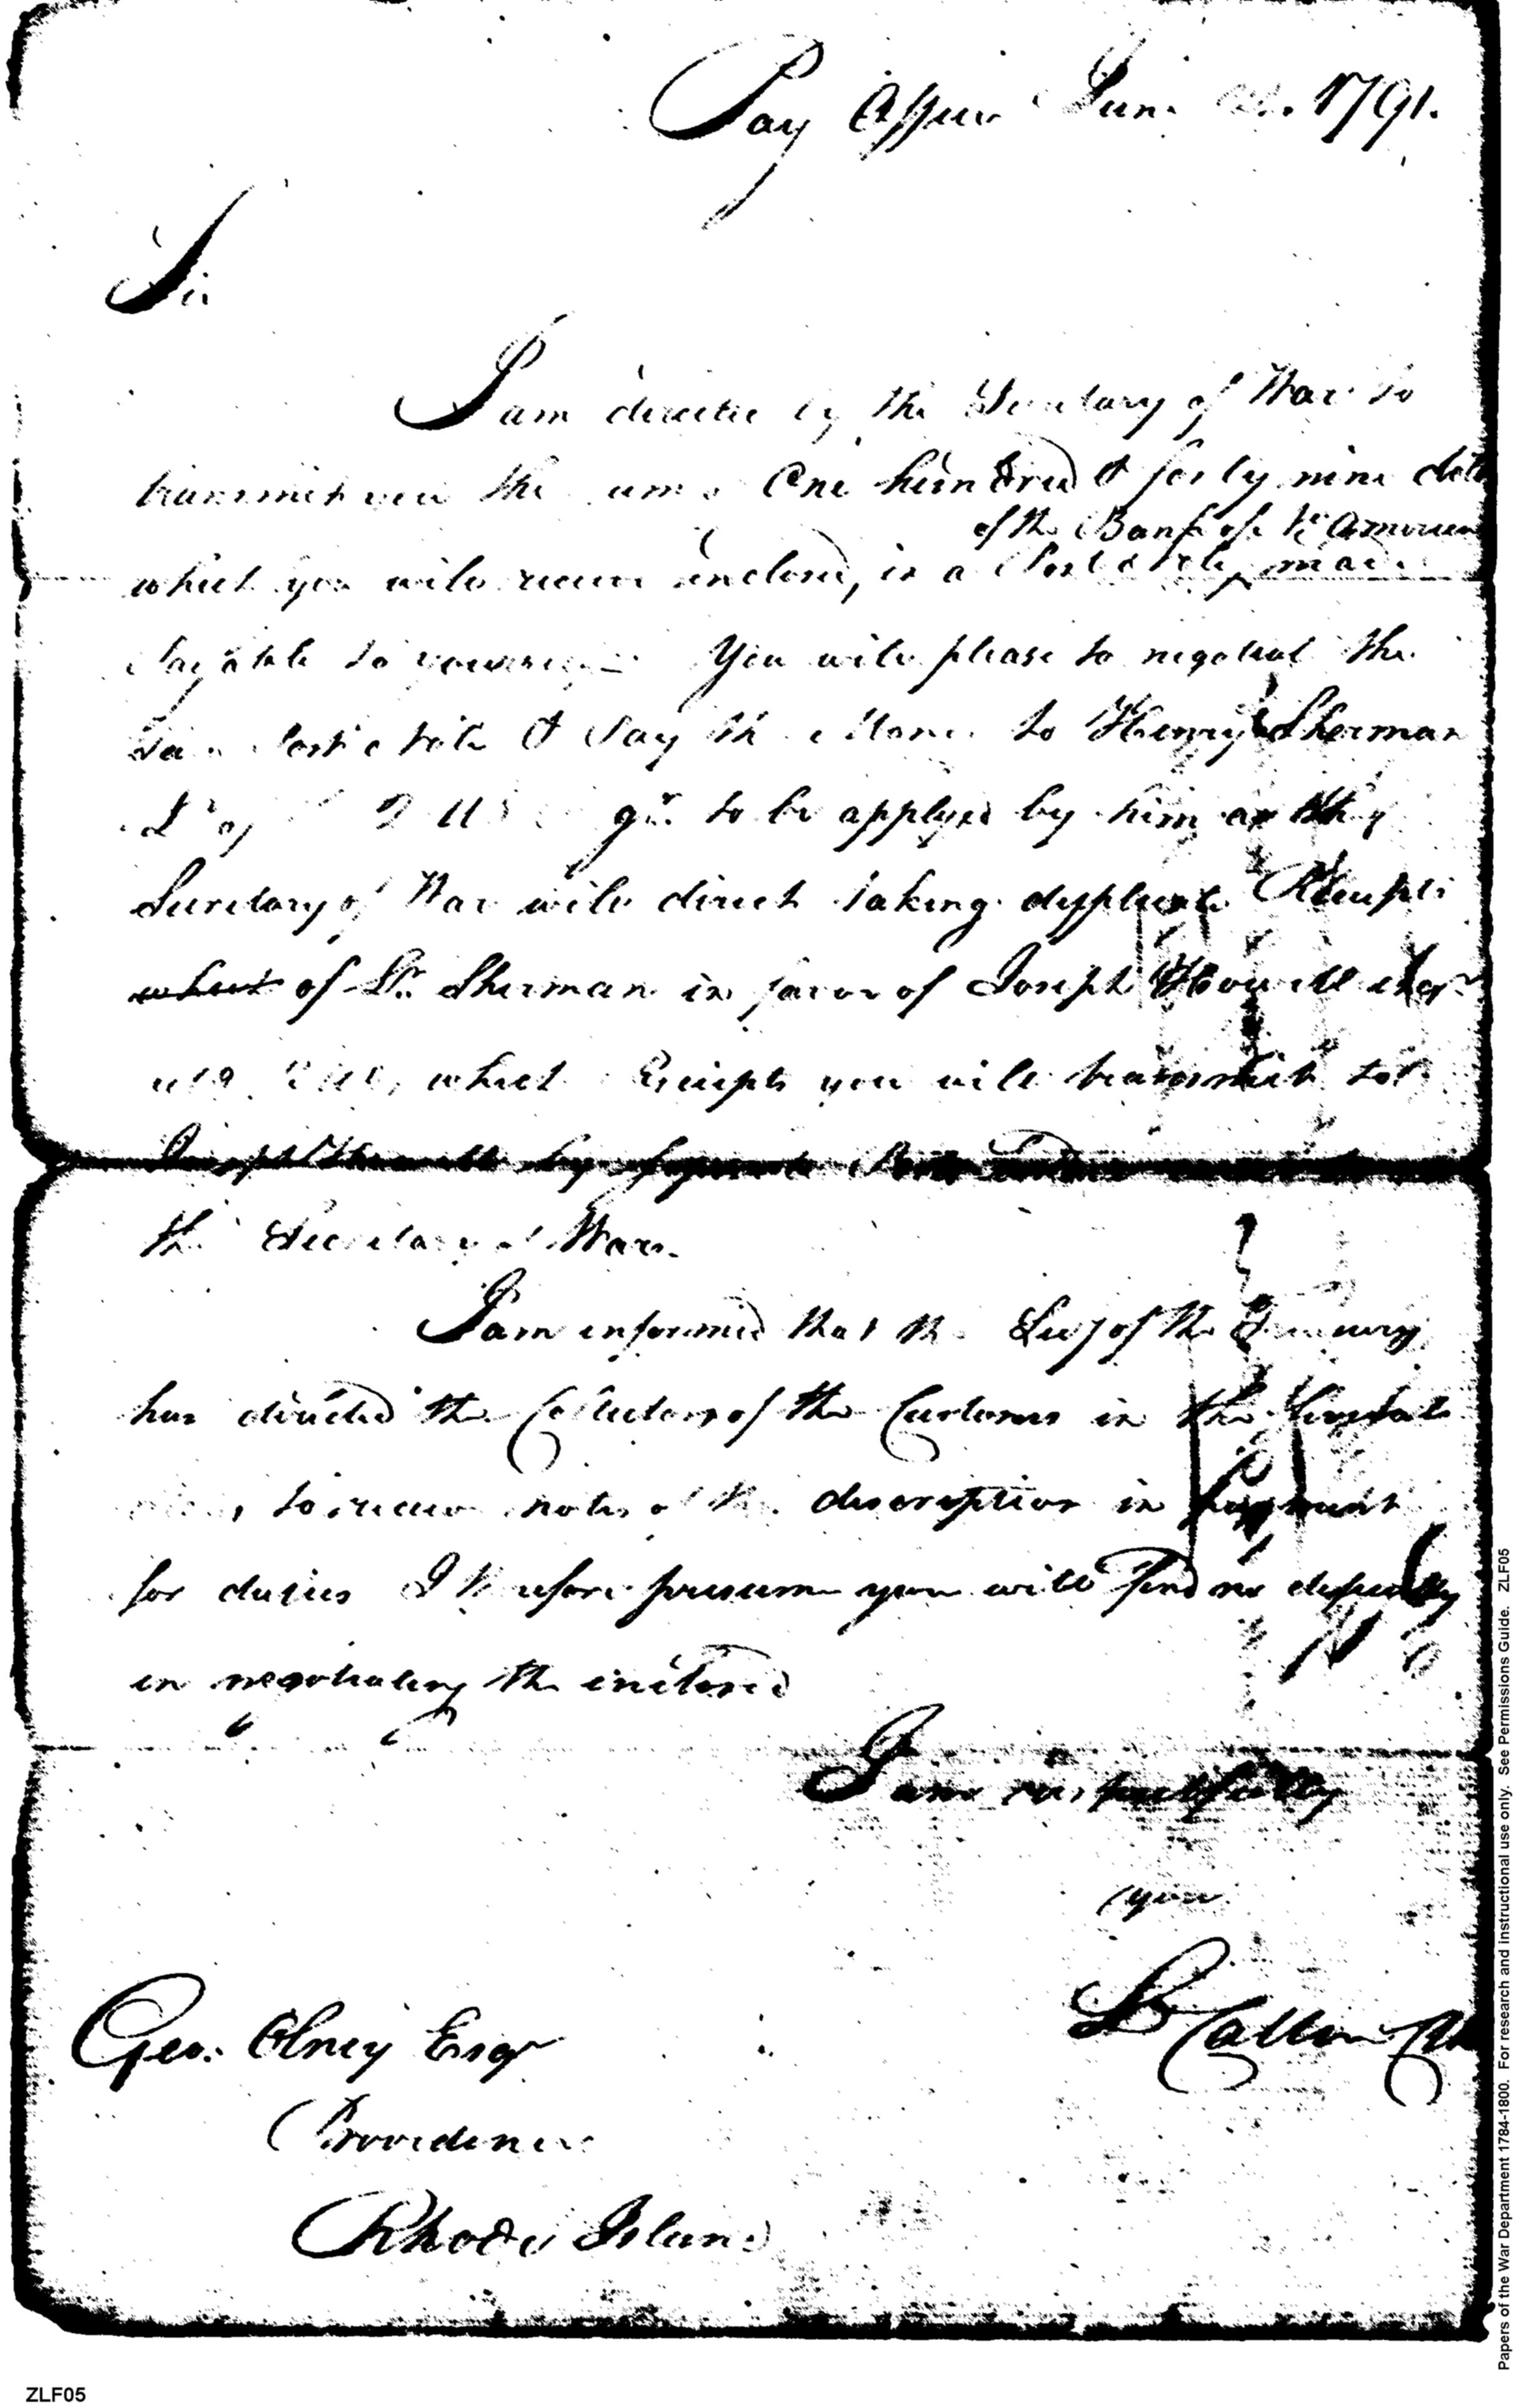 Pay Office June 1791.
Sir
I am directed by the Secretary of War to
transmit you the sum of One hundred & forty nine dolls
of the Bank of No America
which you will receive inclosed, in a Post Note, made
payable to yourself — You will please to negotiate the
said Post Note & pay the Money to Henry Sherman
Lt of to be applyed by him as the
Secretary of War will direct taking dupplicate Receipts
which of Lt. Sherman in favor of Joseph Howell
which Receipts you will transmit to
Joseph Howell by
the Secretary of War.
I am informed that the Secy of the Treasury
has directed the Collectors of the Customs in the several
to receive notes of this description in payment
for duties I therefore presume you will find no difficulty
in negotiating the inclosed
I am respectfully
your
Geo. Olney Esqr
Providence
Rhode Island
Papers of the War Department 1784-1800. For research and instructional use only. See Permissions Guide. ZLF05
ZLF05